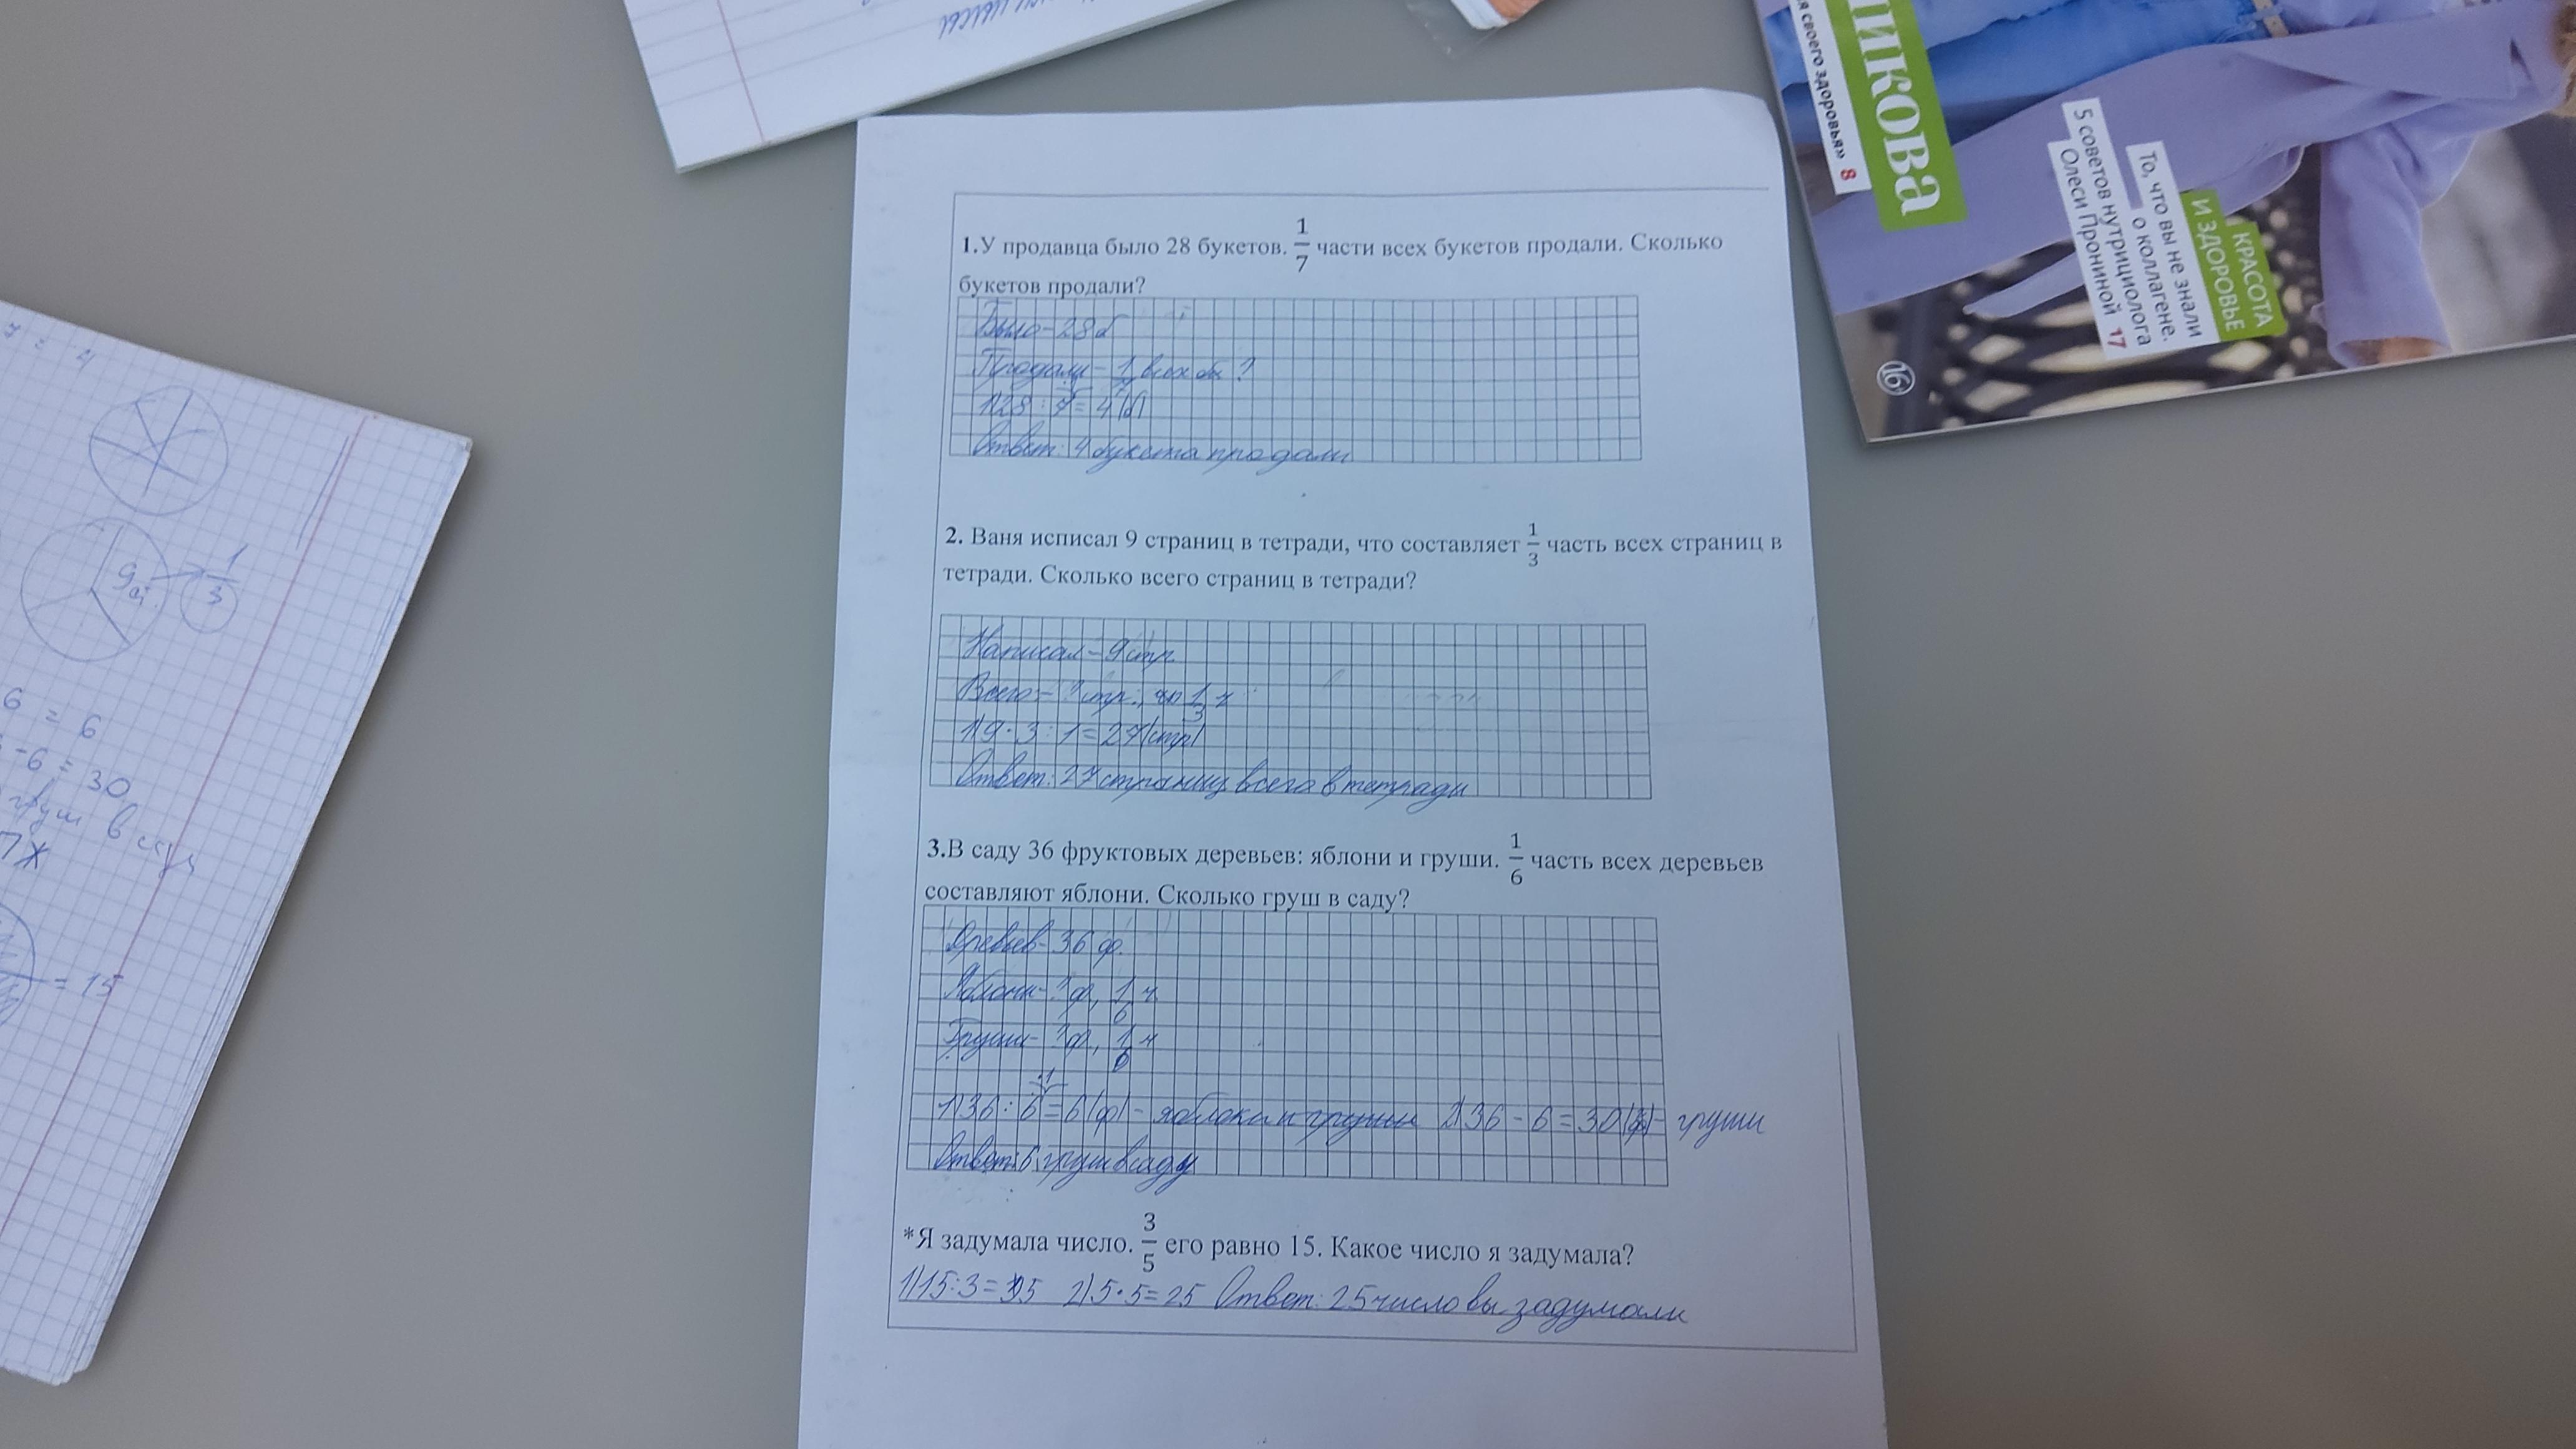 1.У продавца было 28 букетов. 1/7 части всех букетов продали. Сколько
букетов продали?
Было - 28 б
Продали - 1/7 всех б. ?
1) 28 : 7 = 4 (б)
Ответ: 4 букета продали
2. Ваня исписал 9 страниц в тетради, что составляет 1/3 часть всех страниц в
тетради. Сколько всего страниц в тетради?
Написал - 9 стр.
Всего - ? стр., 1/3 ч
1) 9 · 3 : 1 = 27 (стр)
Ответ: 27 страниц всего в тетради
3.В саду 36 фруктовых деревьев: яблони и груши. 1/6 часть всех деревьев
составляют яблони. Сколько груш в саду?
Древьев - 36 ф.
Яблони - ? ф, 1/6 ч
Груши - ? ф, 1/6 ч
1) 36 : 6 = 6 (ф) - яблоки и груши 2) 36 - 6 = 30 (ф) - груши
Ответ: 6 груш в саду
*Я задумала число. 3/5 его равно 15. Какое число я задумала?
1) 15 : 3 = 5 2) 5 · 5 = 25 Ответ: 25 число вы задумали
7 = 4
9
1/3
6 = 6
-6 = 30
груш в саду
= 15
я своего здоровья» 8
ИКОВА
КРАСОТА
И ЗДОРОВЬЕ
То, что вы не знали
о коллагене.
5 советов нутрициолога
Олеси Прониной 17
16